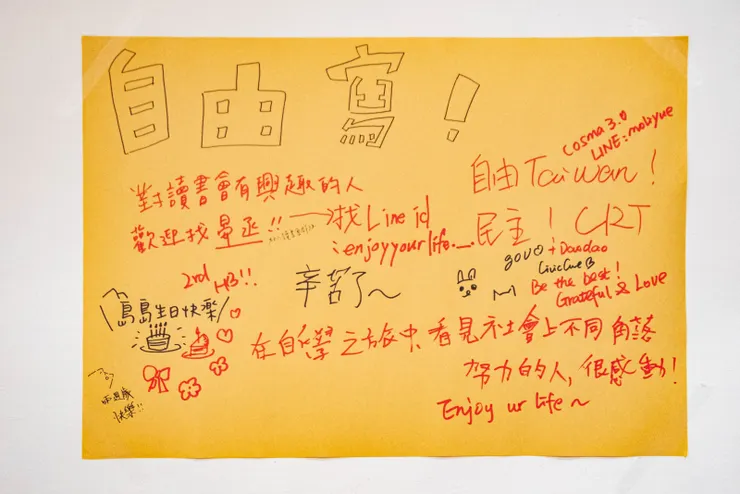 自由寫!
cosma 3.0
LINE: mobyue
自由 Taiwan!
對讀書會有興趣的人
歡迎找晏丞!! → 找 Line id
: enjoyyourlife._.
民主! CRT
gov
+ Daodao
Be the best!
Grateful & Love
2nd HB!!
島島生日快樂
辛苦了~
在自學之旅中,看見社會上不同角落
努力的人,很感動!
Enjoy ur life ~
兩週歲
快樂!!